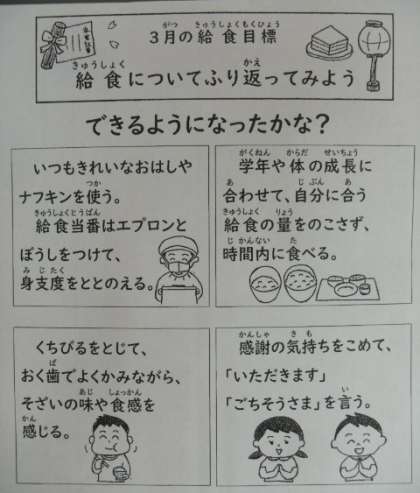 3月の給食目標
給食についてふり返ってみよう
できるようになったかな?
いつもきれいなおはしや
ナフキンを使う。
給食当番はエプロンと
ぼうしをつけて、
身支度をととのえる。
学年や体の成長に
合わせて、自分に合う
給食の量をのこさず、
時間内に食べる。
くちびるをとじて、
おく歯でよくかみながら、
そざいの味や食感を
感じる。
感謝の気持ちをこめて、
「いただきます」
「ごちそうさま」を言う。